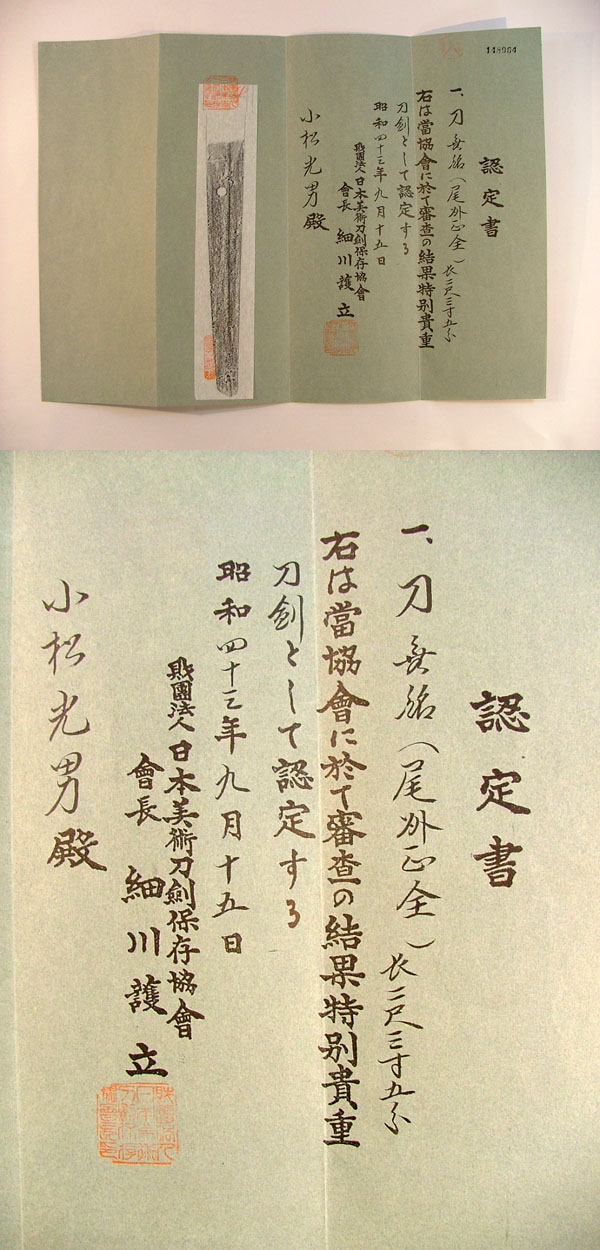 148004
認定書
一、刀 無銘（尾州正全）長二尺三寸五分
右は當協會に於て審査の結果特別貴重
刀劍として認定する
昭和四十三年九月十五日
財團法人日本美術刀劍保存協會
會長 細川護立
小松光男殿
認定書
一、刀 無銘（尾州正全）長二尺三寸五分
右は當協會に於て審査の結果特別貴重
刀劍として認定する
昭和四十三年九月十五日
財團法人日本美術刀劍保存協會
會長 細川護立
小松光男殿